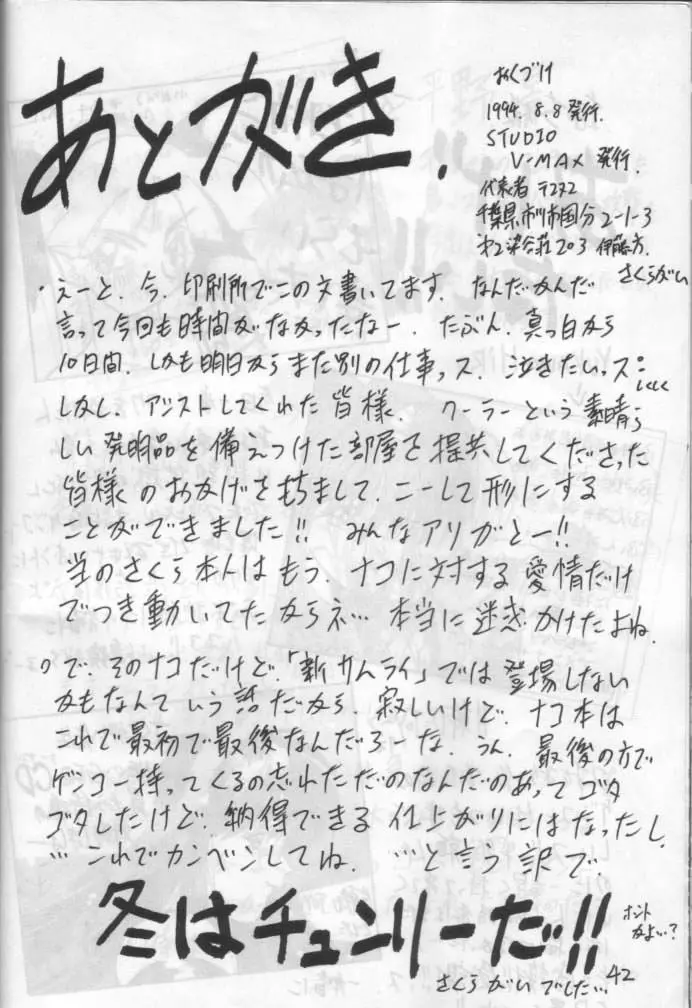 あとがき.
おくづけ
1994. 8. 8 発行.
STUDIO
V-MAX 発行.
代表者
千葉県市川市国分2-1-3
第2染谷荘203 伊藤方.
さくらがい
・えーと、今、印刷所でこの文書いてます。なんだかんだ
言って今回も時間がなかったなー。たぶん、真っ白から
10日間、しかも明日からまた別の仕事っス。泣きたいっス…
しかし、アシストしてくれた皆様、クーラーという素晴ら
しい発明品を備えつけた部屋を提供してくださった
皆様のおかげを持ちまして、こーして形にする
ことができました!! みんなアリガとー!!
当のさくら本人はもう、ナコに対する愛情だけ
でつき動いてたからネ… 本当に迷惑かけたよね。
○で、そのナコだけど、「新サムライ」では登場しない
かもなんていう話だから、寂しいけど、ナコ本は
これで最初で最後なんだろーな、うん、最後の方で
ゲンコー持ってくるの忘れただのなんだのあってゴタ
ゴタしたけど、納得できる仕上がりにはなったし、
…これでカンベンしてね。…と言う訳で
冬はチュンリーだっ!!
ホント
かよい?
さくらがいでした…
42